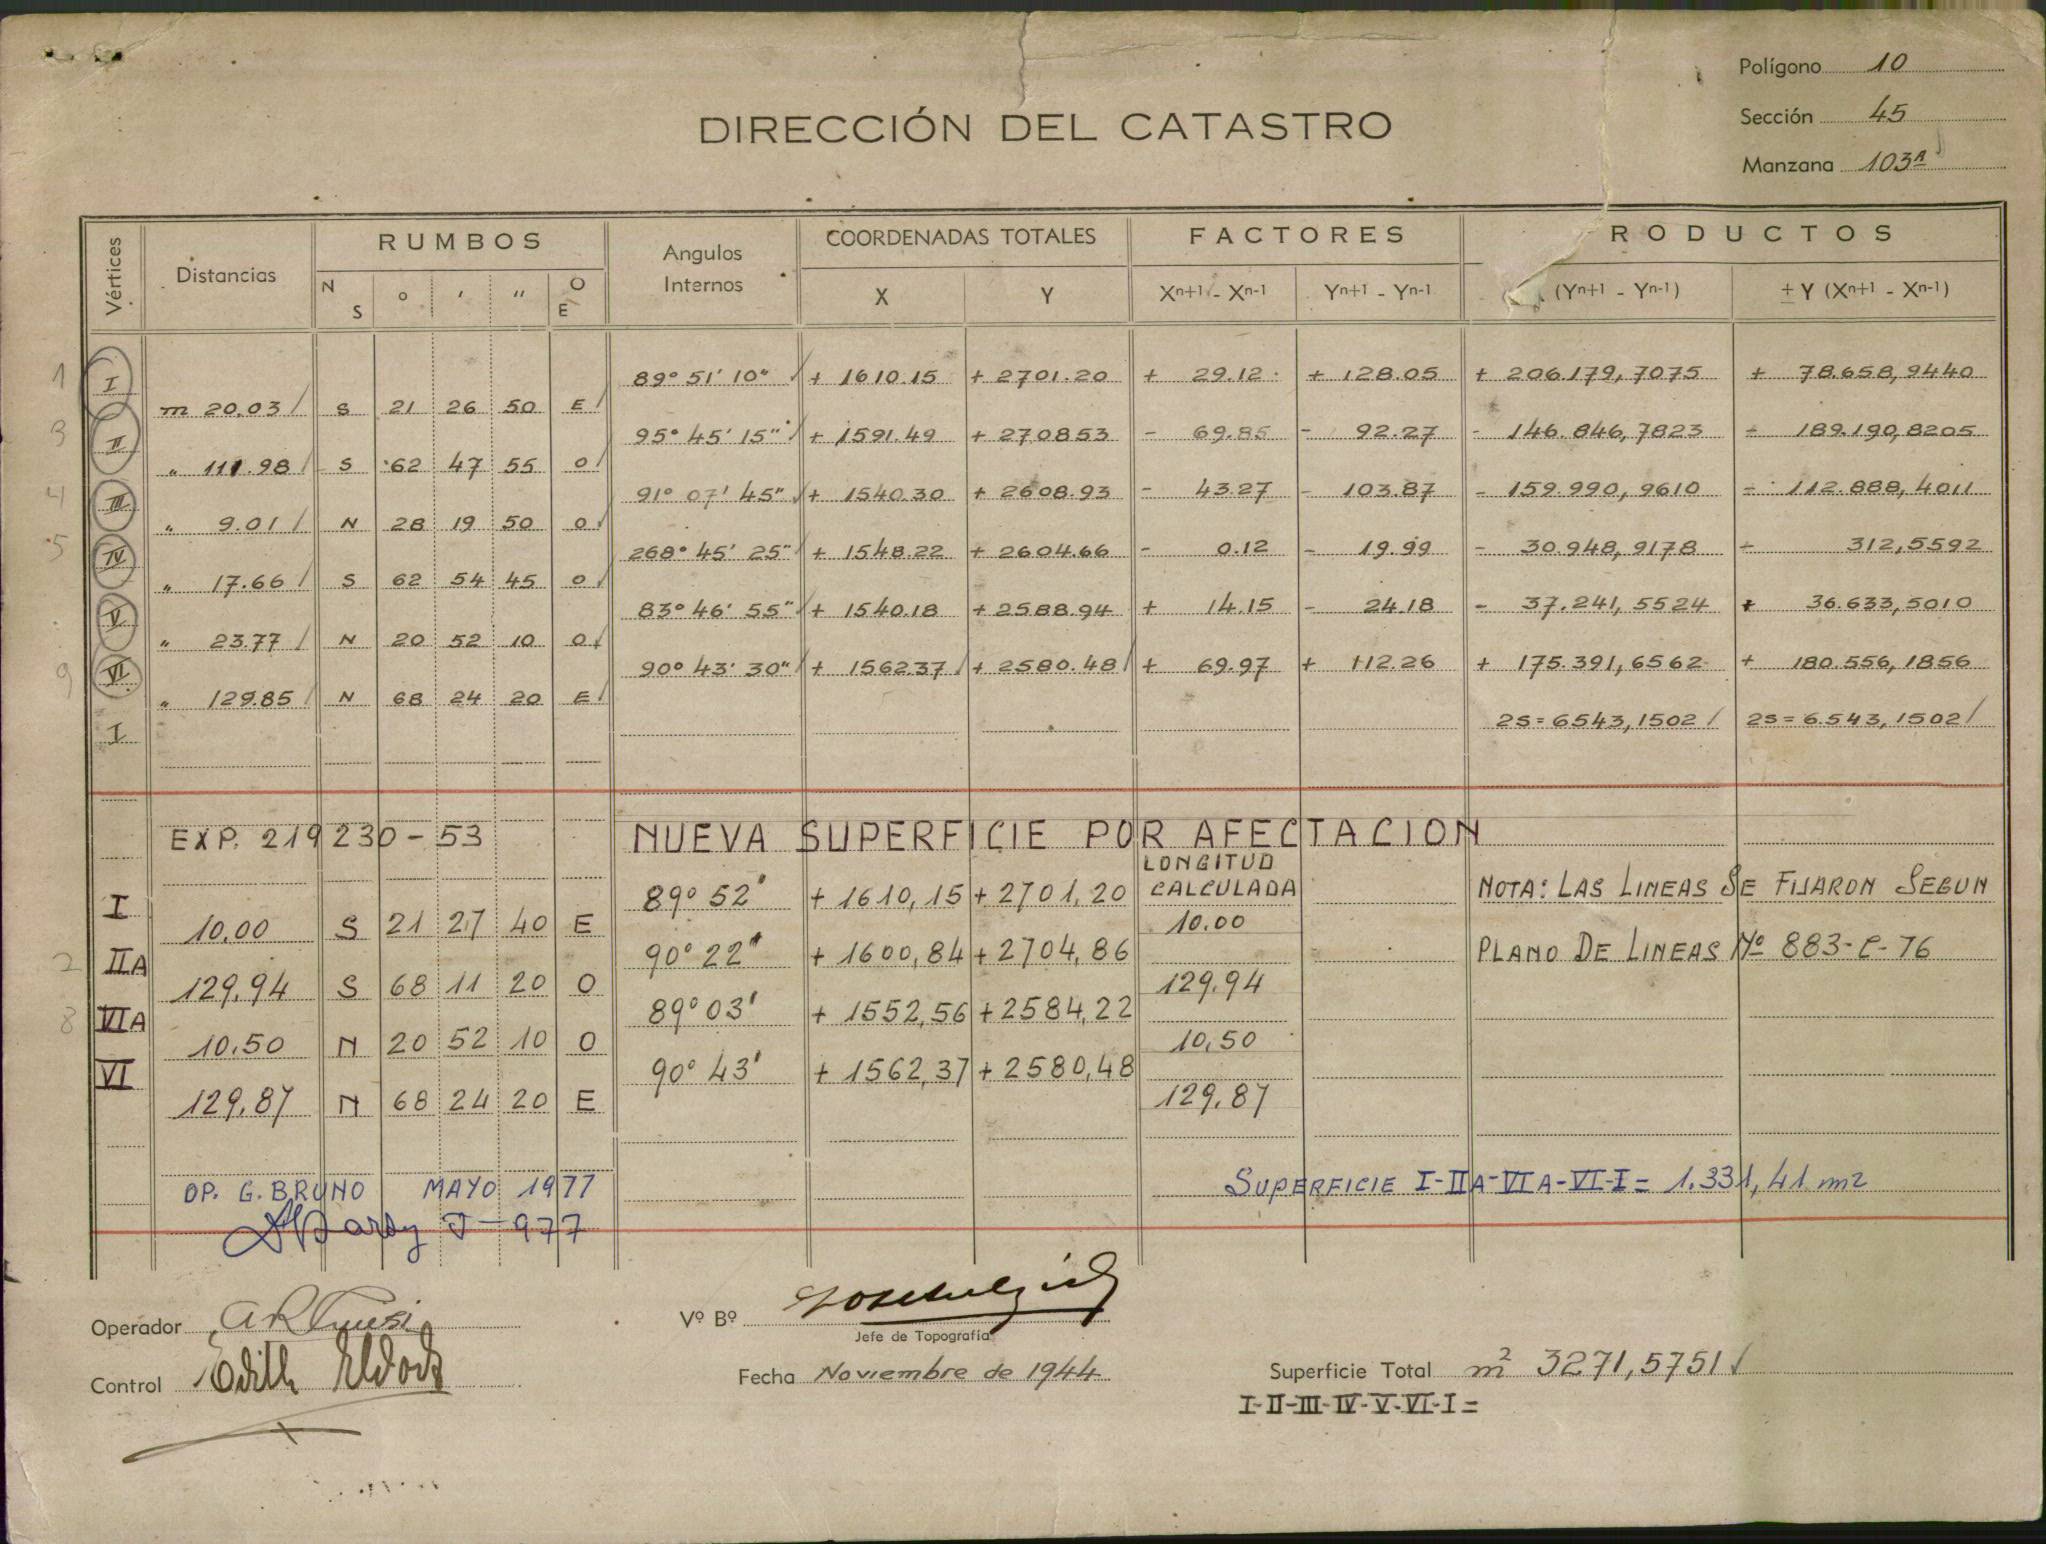 Polígono 10
Sección 45
Manzana 103A
DIRECCIÓN DEL CATASTRO
Vértices Distancias RUMBOS Angulos Internos COORDENADAS TOTALES FACTORES RODUCTOS
N S ° ' " O E X Y Xn+1 - Xn-1 Yn+1 - Yn-1 (Yn+1 - Yn-1) ± Y (Xn+1 - Xn-1)
1 I 89° 51' 10" + 1610.15 + 2701.20 + 29.12 + 128.05 + 206.179,7075 + 78.658,9440
m 20.03 S 21 26 50 E
3 II 95° 45' 15" + 1591.49 + 2708.53 - 69.85 - 92.27 - 146.846,7823 - 189.190,8205
" 111.98 S 62 47 55 O
4 III 91° 07' 45" + 1540.30 + 2608.93 - 43.27 - 103.87 - 159.990,9610 - 112.888,4011
" 9.01 N 28 19 50 O
5 IV 268° 45' 25" + 1548.22 + 2604.66 - 0.12 - 19.99 - 30.948,9178 - 312,5592
" 17.66 S 62 54 45 O
V 83° 46' 55" + 1540.18 + 2588.94 + 14.15 - 24.18 - 37.241,5524 + 36.633,5010
" 23.77 N 20 52 10 O
9 VI 90° 43' 30" + 1562.37 + 2580.48 + 69.97 + 112.26 + 175.391,6562 + 180.556,1856
" 129.85 N 68 24 20 E
I 2S = 6543,1502 2S = 6.543,1502
EXP. 219230-53 NUEVA SUPERFICIE POR AFECTACION
LONGITUD
CALCULADA
I 89° 52' + 1610,15 + 2701,20 NOTA: LAS LINEAS SE FIJARON SEGUN
10,00 S 21 27 40 E 10.00
2 IIA 90° 22' + 1600,84 + 2704,86 PLANO DE LINEAS Nº 883-C-76
129,94 S 68 11 20 O 129.94
8 VIA 89° 03' + 1552,56 + 2584,22
10.50 N 20 52 10 O 10,50
VI 90° 43' + 1562,37 + 2580,48
129,87 N 68 24 20 E 129.87
OP. G. BRUNO MAYO 1977 SUPERFICIE I-IIA-VIA-VI-I = 1.331,41 m2
977
Operador
Vº Bº
Jefe de Topografía
Control Edith
Fecha Noviembre de 1944
Superficie Total m² 3271,5751
I-II-III-IV-V-VI-I =